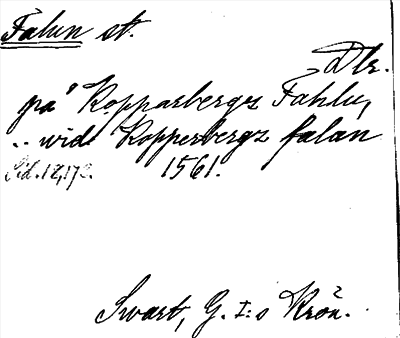 Falun st.
Dlr.
på Kopparbergz Fahlu,
.. wid Kopperbergz falan
Sid. 12, 172. 1561.
Swart, G. I:s Krön.